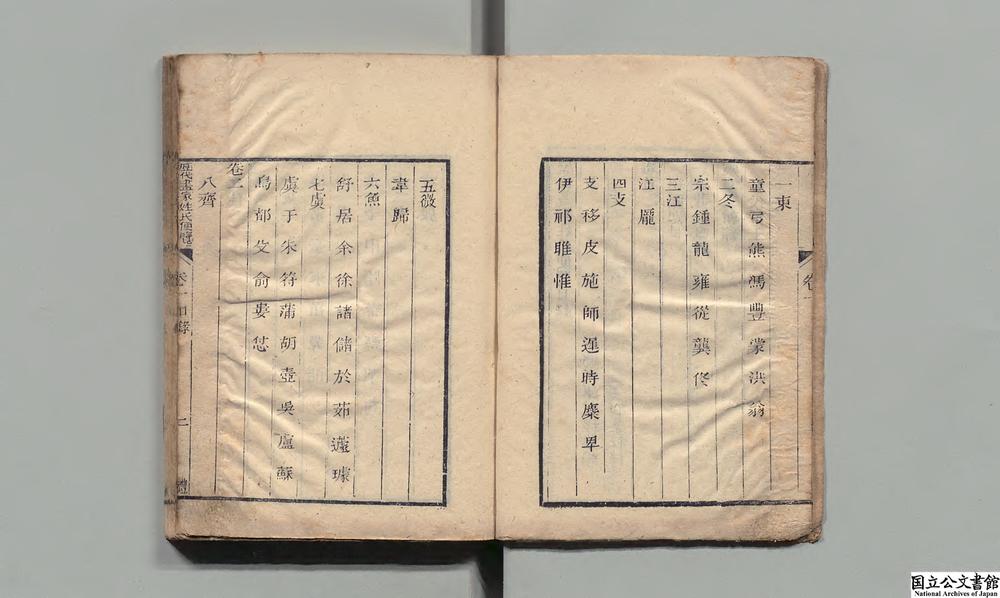 卷一
一東
童弓熊馮豐蒙洪翁
二冬
宗鍾龍雍從龔佟
三江
江龐
四支
支移皮施師遲時麋卑
伊祁睢惟
五微
韋歸
六魚
舒居余徐諸儲於茹蘧璩
七虞
虞于朱符蒲胡壺吳盧蘇
烏都殳俞婁
卷二
八齊
歷代畫家姓氏便覽 卷一目錄 二
国立公文書館
National Archives of Japan